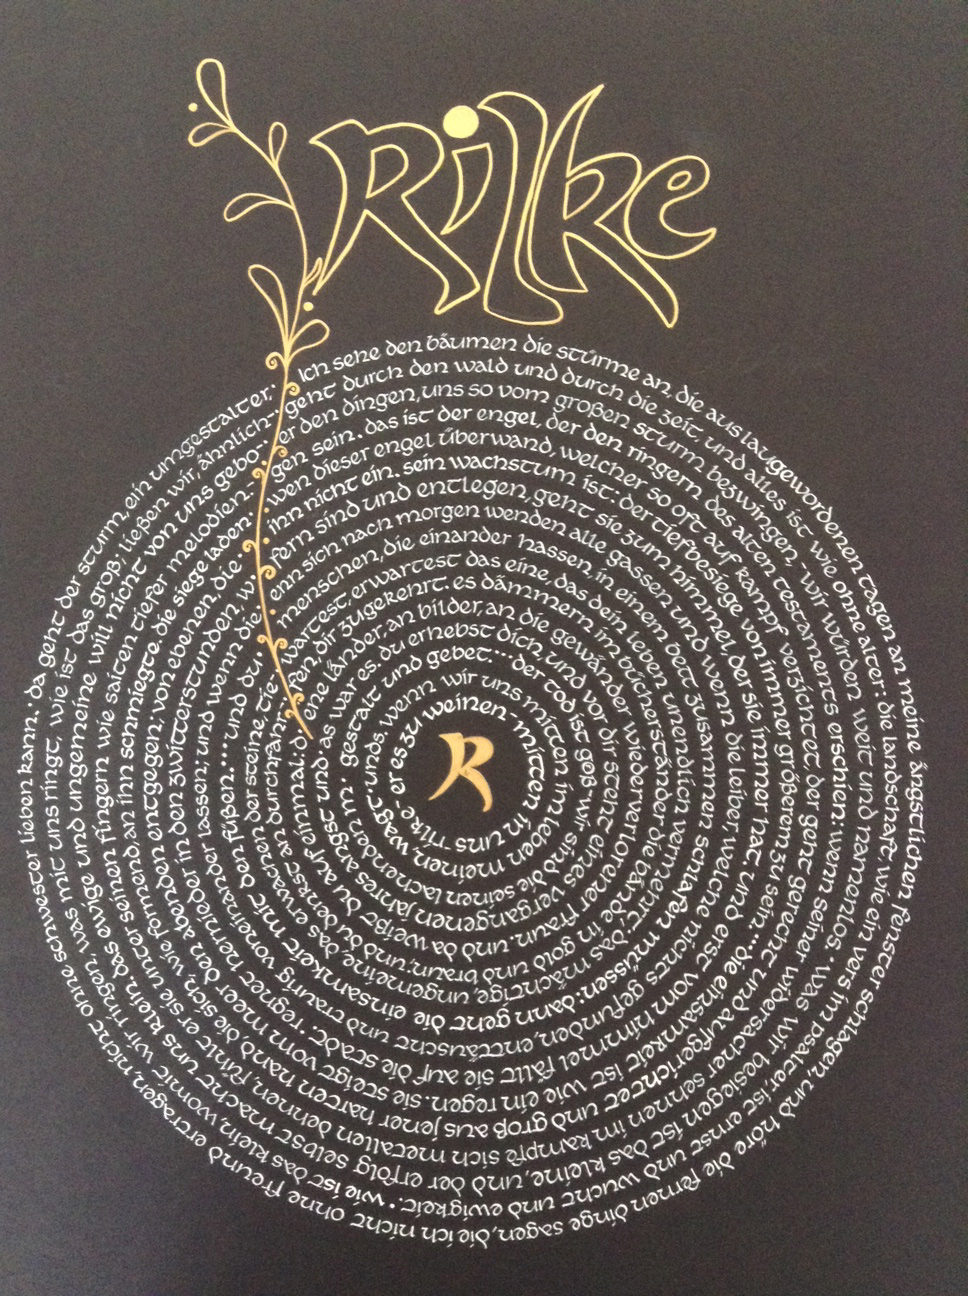 Rilke
Ich sehe den bäumen die stürme an, die aus laugewordenen tagen an meine ängstlichen fenster schlagen, und höre die fernen dinge sagen, die ich nicht ohne freund ertragen, nicht ohne schwester lieben kann. da geht der sturm, ein umgestalter,
geht durch den wald und durch die zeit, und alles ist wie ohne alter: die landschaft, wie ein vers im psalter, ist ernst und wucht und ewigkeit. • wie ist das klein, womit wir ringen, was mit uns ringt, wie ist das groß; ließen wir, ähnlich-
er den dingen, uns so vom großen sturm bezwingen, - wir würden weit und namenlos. • was wir besiegen ist das kleine, und der erfolg selbst macht uns klein. das ewige und ungemeine will nicht von uns gebo-
gen sein. das ist der engel, der den ringern des alten testaments erschien: wenn seiner widersacher sehnen im kampfe sich metallen dehnen, fühlt er sie unter seinen fingern wie saiten tiefer melodien.
wen dieser engel überwand, welcher so oft auf kampf verzichtet, der geht gerecht und aufgerichtet und groß aus jener harten hand, die sich, wie formend, an ihn schmiegte. die siege laden
ihn nicht ein. sein wachstum ist: der tiefbesiegte von immer größerem zu sein... die einsamkeit ist wie ein regen. sie steigt vom meer den abenden entgegen; von ebenen, die
fern sind und entlegen, geht sie zum himmel, der sie immer hat. und erst vom himmel fällt sie auf die stadt. regnet hernieder in den zwitterstunden, w
enn sich nach morgen wenden alle gassen und wenn die leiber, welche nichts gefunden, enttäuscht und traurig voneinander lassen; und wenn die
menschen, die einander hassen, in einem bett zusammen schlafen müssen: dann geht die einsamkeit mit den füßen... und du
wartest, erwartest das eine, das dein leben unendlich vermehrt; das mächtige, ungemeine, das erwachen der steine, tie
fen, dir zugekehrt. es dämmern im bücherständer die bände in gold und braun; und du denkst an durchfahr-
ene länder, an bilder, an die gewänder wiederverlorener fraun. und da weißt du auf einmal: d
as war es. du erhebst dich und vor dir steht eines vergangenen jahres angst und
gestalt und gebet... der tod ist groß wir sind die seinen lachenden m
unds. wenn wir uns mitten im leben meinen, wagt
er es zu weinen - mitten in uns. rilke -
R